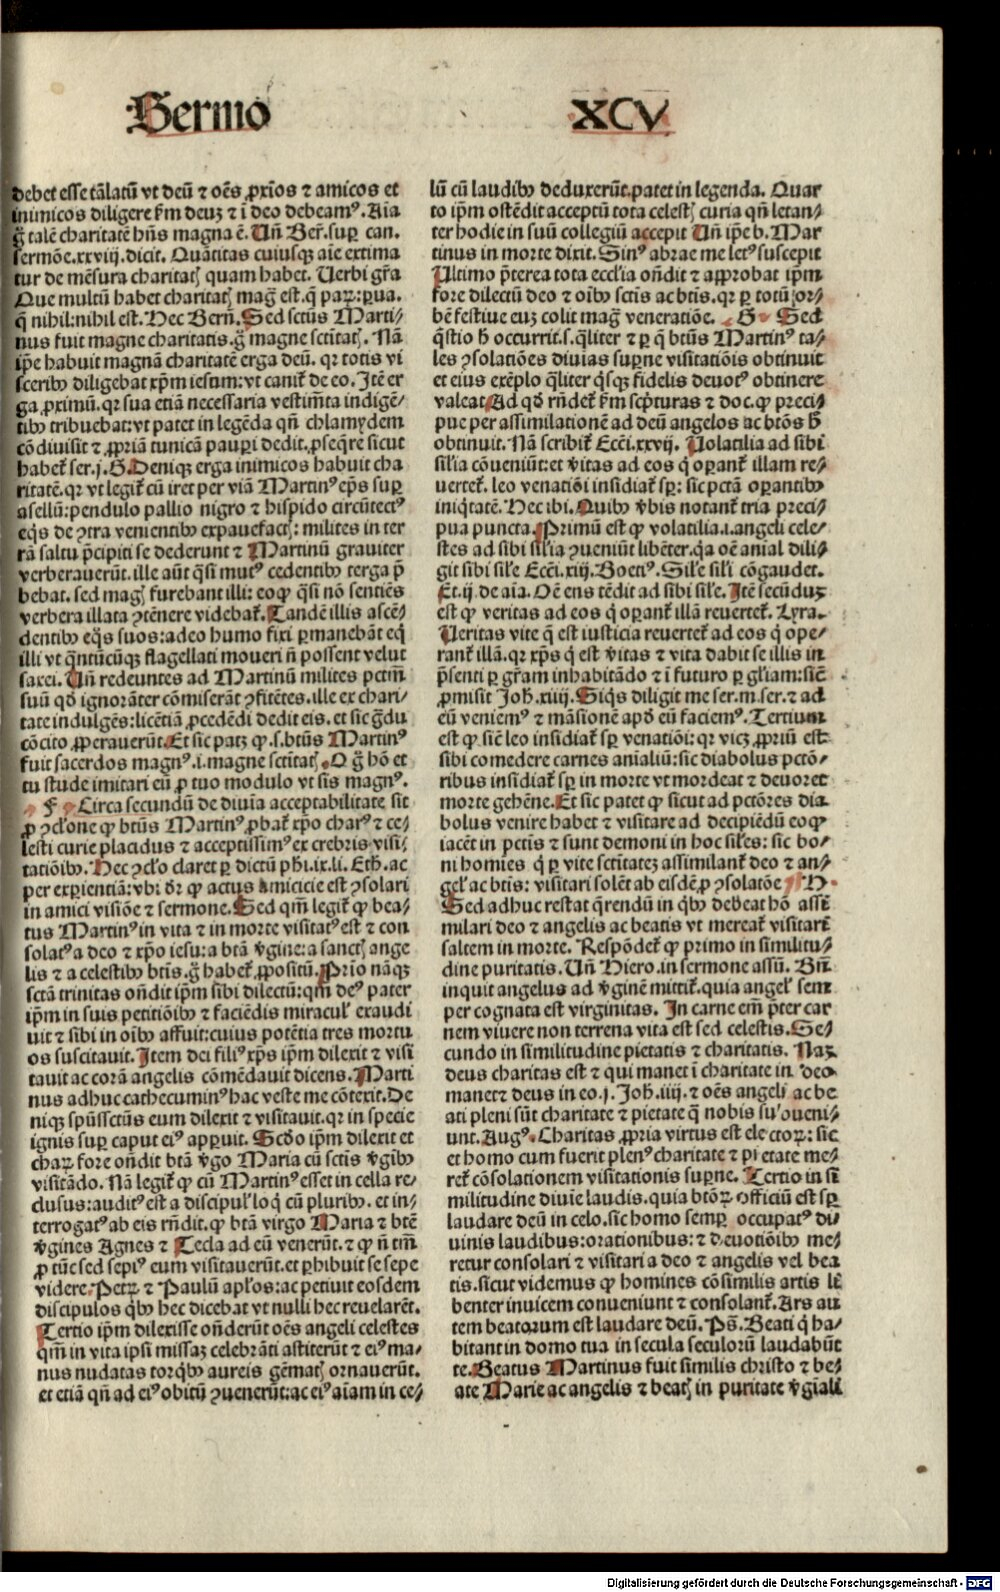 Sermo XCV
debet esse tālatū vt deū ⁊ oēs ꝓxīos ⁊ amicos et
inimicos diligere ẜm deuȝ ⁊ ī deo debeamꝰ. Aīa
g̃ talē charitatē hn̄s magna ē. Un̄ Ber̄. suꝑ can.
sermōe.xxviij. dicit. Quātitas cuiusqȝ aīe extima
tur de mēsura charitatꝭ quam habet. Uerbi gr̄a
Que multū habet charitatꝭ mag̃ est. q̄ paꝝ: ꝑua.
q̄ nihil: nihil est. Hec Bern̄. Sed sctūs Marti⸗
nus fuit magne charitatis. g̃ magne sctitatꝭ. Nā
ip̄e habuit magnā charitatē erga deū. qꝛ totis vi
sceribꝰ diligebat xp̄m iesum: vt canit᷑ de eo. Itē er
ga ꝓximū. qꝛ sua etiā necessaria vestim̄ta indigē⸗
tibꝰ tribuebat: vt patet in legēda qn̄ chlamydem
cōdiuisit ⁊ ꝓpriā tunicā pauꝑi dedit. ꝓseq̄re sicut
habet᷑ ser.j. G Deniqȝ erga inimicos habuit cha
ritatē. qꝛ vt legit᷑ cū iret per viā Martinꝰ ep̄s suꝑ
asellū: pendulo pallio nigro ⁊ hispido circūtectꝰ
eq̄s de ꝯtra venientibꝰ expauefactꝭ: milites in ter
rā saltu p̄cipiti se dederunt ⁊ Martinū grauiter
verberauerūt. ille aūt q̄si mutꝰ cedentibꝰ terga p̄
bebat. sed magꝭ furebant illi: eoꝙ q̄si nō sentiēs
verbera illata ꝯtēnere videbat᷑. Tandē illis ascē⸗
dentibꝰ eq̄s suos: adeo humo fixi ꝑmanebāt eq̄
illi vt q̄ntūcūqȝ flagellati moueri n̄ possent velut
saxei. Un̄ redeuntes ad Martinū milites pctm̄
suū qd̄ ignorāter cōmiserāt ꝯfitētes. ille ex chari⸗
tate indulgēs: licētiā ꝓcedēdi dedit eis. et sic g̃du
cōcito ꝓperauerūt. Et sic patȝ ꝙ .s. btūs Martinꝰ
fuit sacerdos magnꝰ .i. magne sctitatꝭ. O g̃ hō et
tu stude imitari eū ꝓ tuo modulo vt sis magnꝰ.
F Circa secundū de diuīa acceptabilitate sit
ꝓ ꝯcl'one ꝙ btūs Martinꝰ ꝓbat᷑ xp̄o charꝰ ⁊ ce⸗
lesti curie placidus ⁊ acceptissimꝰ ex crebris visi⸗
tatiōibꝰ. Hec ꝯcl'o claret ꝑ dictū ph̄i.ix.li. Eth. ac
per exꝑientiā: vbi dr̄ ꝙ actus amicicie est ꝯsolari
in amici visiōe ⁊ sermone. Sed qm̄ legit᷑ ꝙ bea⸗
tus Martinꝰ in vita ⁊ in morte visitatꝰ est ⁊ con
solatꝰ a deo ⁊ xp̄o iesu: a btā v̄gine: a sanctꝭ ange
lis ⁊ a celestibꝰ btīs. g̃ habet᷑ ꝓpositū. Prīo nāqȝ
sctā trinitas on̄dit ip̄m sibi dilectū: qm̄ deꝰ pater
ip̄m in suis petitiōibꝰ ⁊ faciēdis miracul' exaudi
uit ⁊ sibi in oībꝰ affuit: cuius potētia tres mortu
os suscitauit. Item dei filiꝰ xp̄s ip̄m dilexit ⁊ visi
tauit ac corā angelis cōmēdauit dicens. Marti
nus adhuc cathecuminꝰ hac veste me cōtexit. De
niqȝ spūssctūs eum dilexit ⁊ visitauit. qꝛ in specie
ignis suꝑ caput eiꝰ apꝑuit. Scdo ip̄m dilexit et
chaꝝ fore on̄dit btā v̄go Maria cū sctīs v̄gībꝰ
visitādo. Nā legit᷑ ꝙ cū Martinꝰ esset in cella re⸗
clusus: auditꝰ est a discipul' loq̄ cū pluribꝰ. et in⸗
terrogatꝰ ab eis rn̄dit. ꝙ btā virgo Maria ⁊ btē
v̄gines Agnes ⁊ Tecla ad eū venerūt. ⁊ ꝙ n̄ tm̄
ꝓ tūc sed sepiꝰ eum visitauerūt. et ꝑhibuit se sepe
videre. Petꝝ ⁊ Paulū apl'os: ac petiuit eosdem
discipulos q̄bꝰ hec dicebat vt nulli hec reuelarēt.
Tertio ip̄m dilexisse on̄derūt oēs angeli celestes
qm̄ in vita ipsi missaȝ celebrāti astiterūt ⁊ eiꝰ ma⸗
nus nudatas torq̄bꝰ aureis gēmatꝭ ornauerūt.
et etiā qn̄ ad eiꝰ obitū ꝯuenerūt: ac eiꝰ aīam in ce⸗
lū cū laudibꝰ deduxerūt. patet in legenda. Quar
to ip̄m ostēdit acceptū tota celestꝭ curia qn̄ letan⸗
ter hodie in suū collegiū accepit Un̄ ip̄e b. Mar
tinus in morte dixit. Sinꝰ abrae me letꝰ suscepit
Ultimo p̄terea tota eccl'ia on̄dit ⁊ approbat ip̄m
fore dilectū deo ⁊ oībꝰ sctīs ac btīs. qꝛ ꝑ totū or⸗
bē festiue euȝ colit mag̃ veneratiōe. G Sed
q̄stio h̄ occurrit. s. q̄liter ⁊ ꝑ q̄ btūs Martinꝰ ta⸗
les ꝯsolatiōes diuīas suꝑne visitatiōis obtinuit
et eius exēplo q̄liter q̄sqȝ fidelis deuotꝰ obtinere
valeat. Ad qd̄ rn̄det᷑ ẜm scp̄turas ⁊ doc. ꝙ preci⸗
pue per assimilationē ad deū angelos ac btōs h̄
obtinuit. Nā scribit᷑ Ecci.xxvij. Uolatilia ad sibi
sil'ia cōueniūt: et v̄itas ad eos q̄ oꝑant᷑ illam re⸗
uertet᷑. leo venatiōi insidiat᷑ sp̄: sic pctā oꝑantibꝰ
iniq̄tatē. Hec ibi. Quibꝰ v̄bis notant᷑ tria preci⸗
pua puncta. Primū est ꝙ volatilia .i. angeli cele⸗
stes ad sibi sil'ia ꝯueniūt libēter. q̄a oē anīal dili⸗
git sibi sil'e Ecci.xiij. Boetiꝰ. Sil'e sil'i cōgaudet.
Et .ij. de aīa. Oē ens tēdit ad sibi sil'e. Itē secūduȝ
est ꝙ veritas ad eos q̄ oꝑant᷑ illā reuertet᷑. Lyra.
Ueritas vite q̄ est iusticia reuertet᷑ ad eos q̄ ope⸗
rant᷑ illā. qꝛ xp̄s q̄ est v̄itas ⁊ vita dabit se illis in
p̄senti ꝑ gr̄am inhabitādo ⁊ ī futuro ꝑ gl'iam: sic̄
ꝓmisit Joh. xiiij. Siq̄s diligit me ser. m. ser. ⁊ ad
eū veniemꝰ ⁊ māsionē apd̄ eū faciemꝰ. Tertium
est ꝙ sic̄ leo insidiat᷑ sp̄ venatiōi: qꝛ vicȝ ꝓpriū est
sibi comedere carnes anīaliū: sic diabolus pctō⸗
ribus insidiat᷑ sp̄ in morte vt mordeat ⁊ deuoret
morte gehēne. Et sic patet ꝙ sicut ad pctōres dia
bolus venire habet ⁊ visitare ad decipiēdū eoꝙ
iacēt in pctīs ⁊ sunt demoni in hoc sil'es: sic bo⸗
ni homīes q̄ ꝑ vite sctitateȝ assimilant᷑ deo ⁊ an⸗
gel' ac btīs: visitari solēt ab eisdē ꝓ ꝯsolatōe H
Sed adhuc restat q̄rendū in q̄bꝰ debeat hō assi
milari deo ⁊ angelis ac beatis vt mereat᷑ visitari
saltem in morte. Respōdet᷑ ꝙ primo in similitu⸗
dine puritatis. Un̄ Hiero. in sermone assū. Bn̄
inquit angelus ad v̄ginē mittit᷑. quia angel' sem
per cognata est virginitas. In carne em̄ p̄ter car
nem viuere non terrena vita est sed celestis. Se⸗
cundo in similitudine pietatis ⁊ charitatis. Naȝ
deus charitas est ⁊ qui manet ī charitate in deo
manet ⁊ deus in eo. j. Joh. iiij. ⁊ oēs angeli ac be
ati pleni sūt charitate ⁊ pietate q̄ nobis su'oueni⸗
unt. Augꝰ. Charitas ꝓpria virtus est electoꝝ: sic
et homo cum fuerit plenꝰ charitate ⁊ pietate me⸗
ret᷑ cōsolationem visitationis suꝑne. Tertio in si
militudine diuīe laudis. quia btōꝝ officiū est sp̄
laudare deū in celo. sic homo semꝑ occupatꝰ di⸗
uinis laudibus: orationibus: ⁊ deuotiōibꝰ me⸗
retur consolari ⁊ visitari a deo ⁊ angelis vel bea
tis. sicut videmus ꝙ homines cōsimilis artis li
benter inuicem conueniunt ⁊ consolant᷑. Ars au
tem beatorum est laudare deū. Ps̄. Beati q̄ ha⸗
bitant in domo tua in secula seculorū laudabūt
te. Beatus Martinus fuit similis christo ⁊ be⸗
ate Marie ac angelis ⁊ beatꝭ in puritate v̄ginali
Digitalisierung gefördert durch die Deutsche Forschungsgemeinschaft - DFG